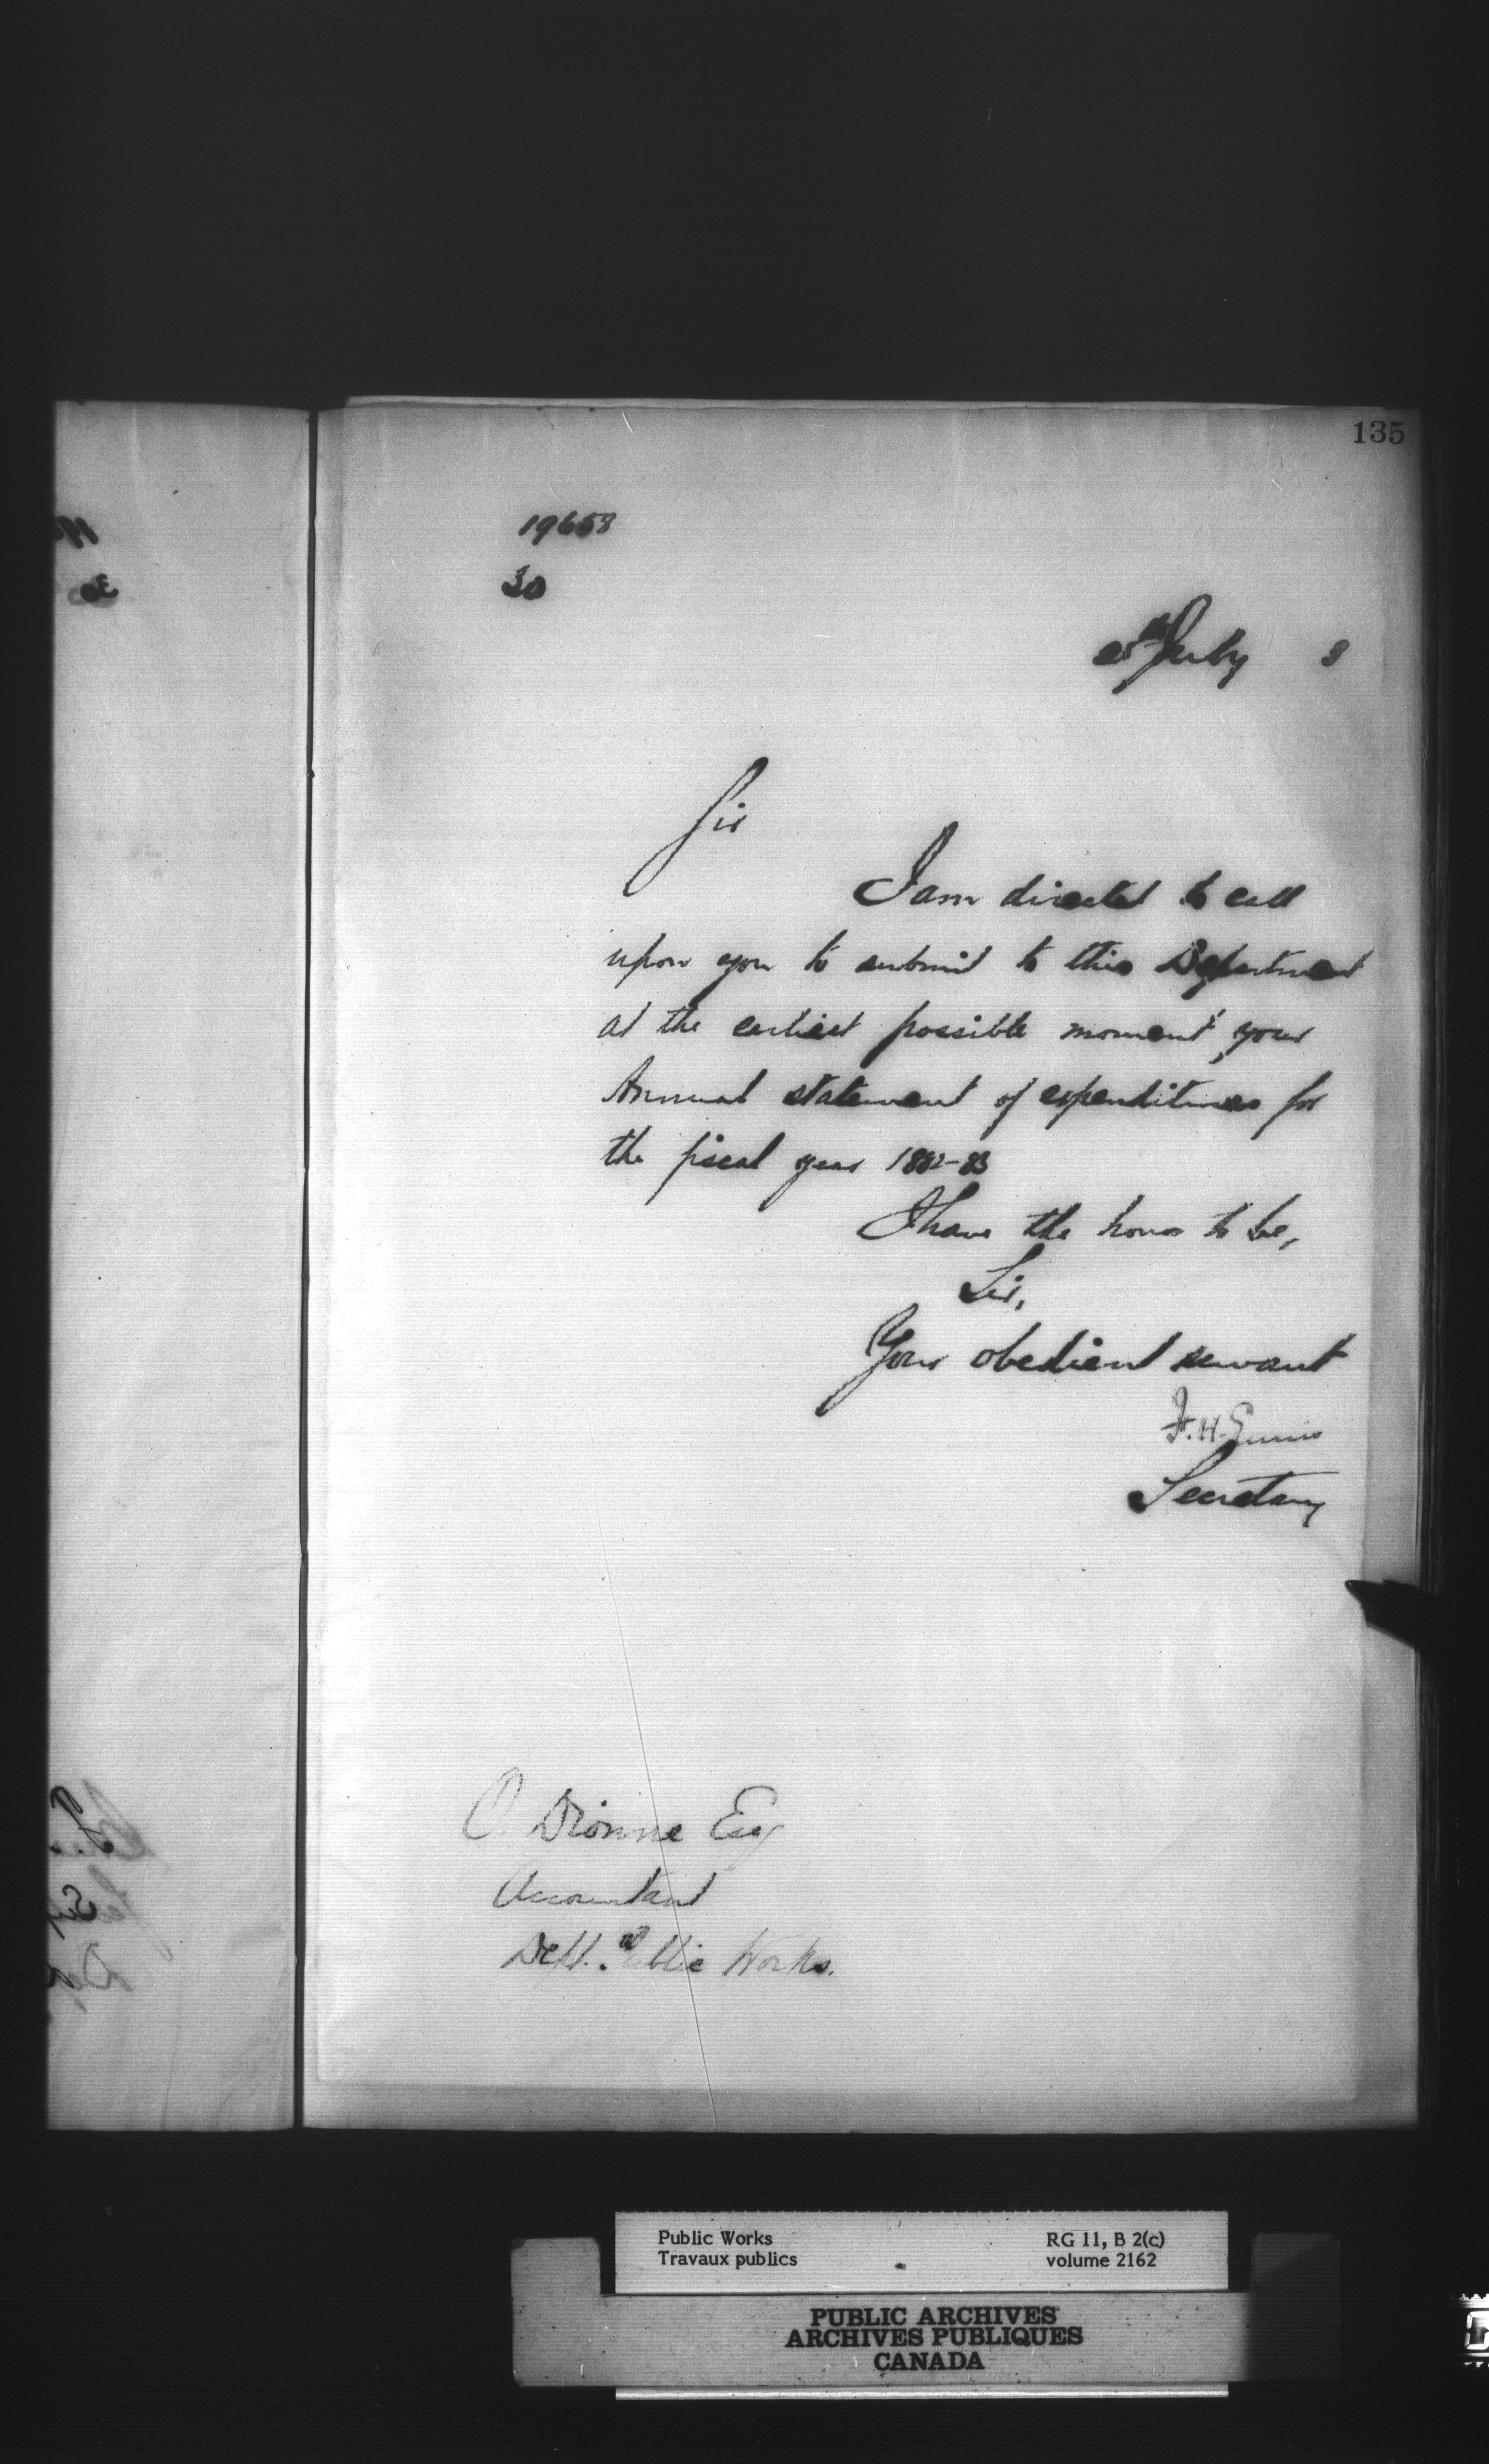 135
19658
30
July 3
Sir
I am directed to call
upon you to submit to this Department
at the earliest possible moment, your
Annual statement of expenditures for
the fiscal year 1882-83
I have the honor to be,
Sir,
Your obedient servant
F. H. Ennis
Secretary
O. Dionne Esq
Accountant
Dept. Public Works.
Public Works
Travaux publics
RG 11, B 2(c)
volume 2162
PUBLIC ARCHIVES
ARCHIVES PUBLIQUES
CANADA